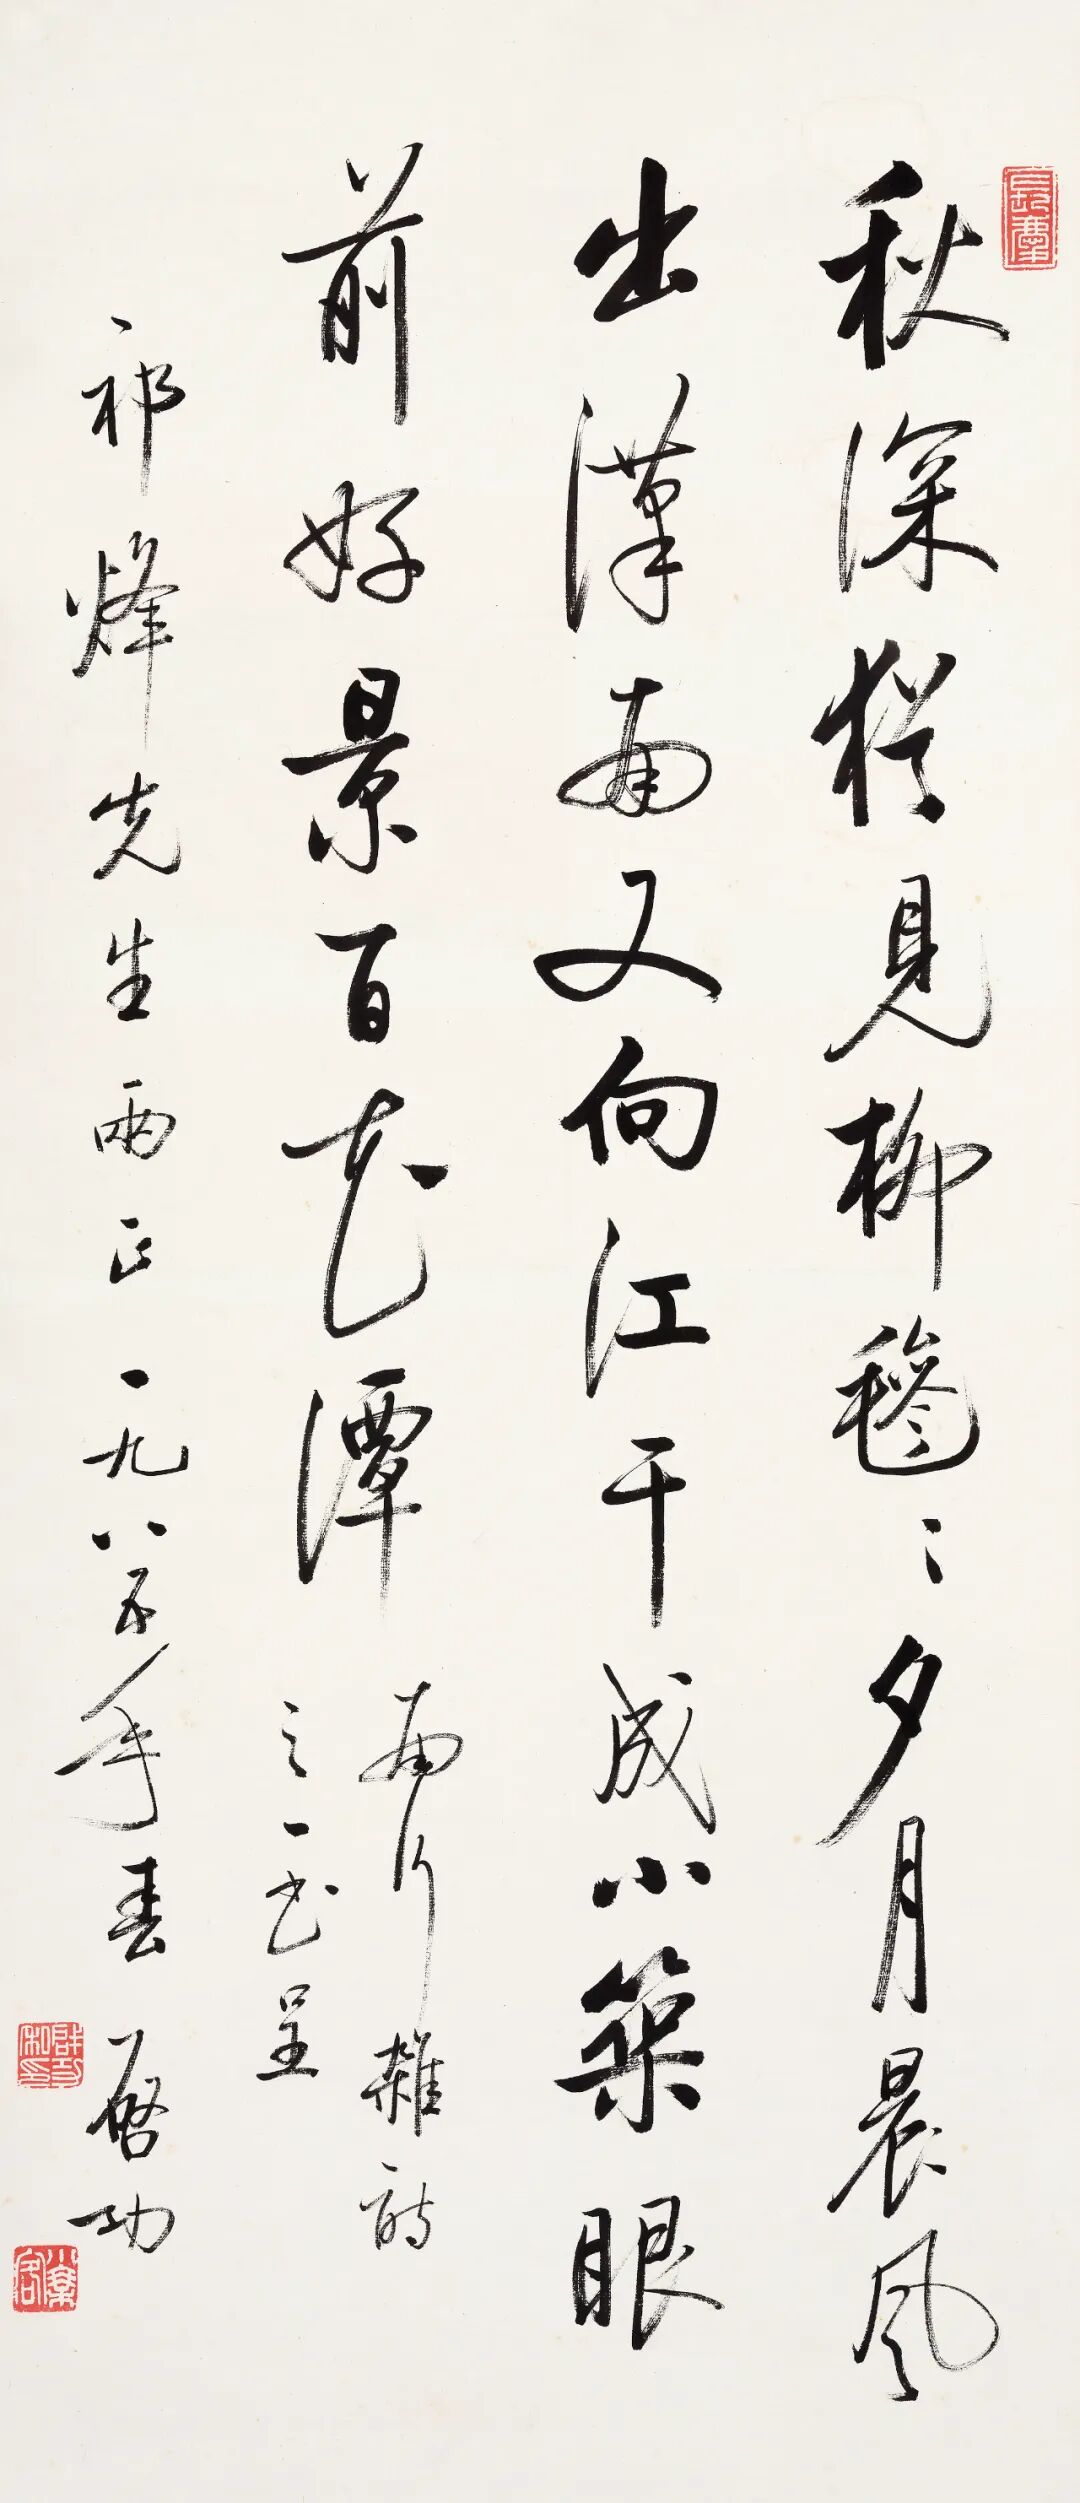 秋深猶見柳毿〻夕月晨風
出漢南又向江干成小築眼
前好景百花潭
南行雜詩
之一書呈
祁烽先生兩正 一九八五年春 啓功
啟功私印
小乘客